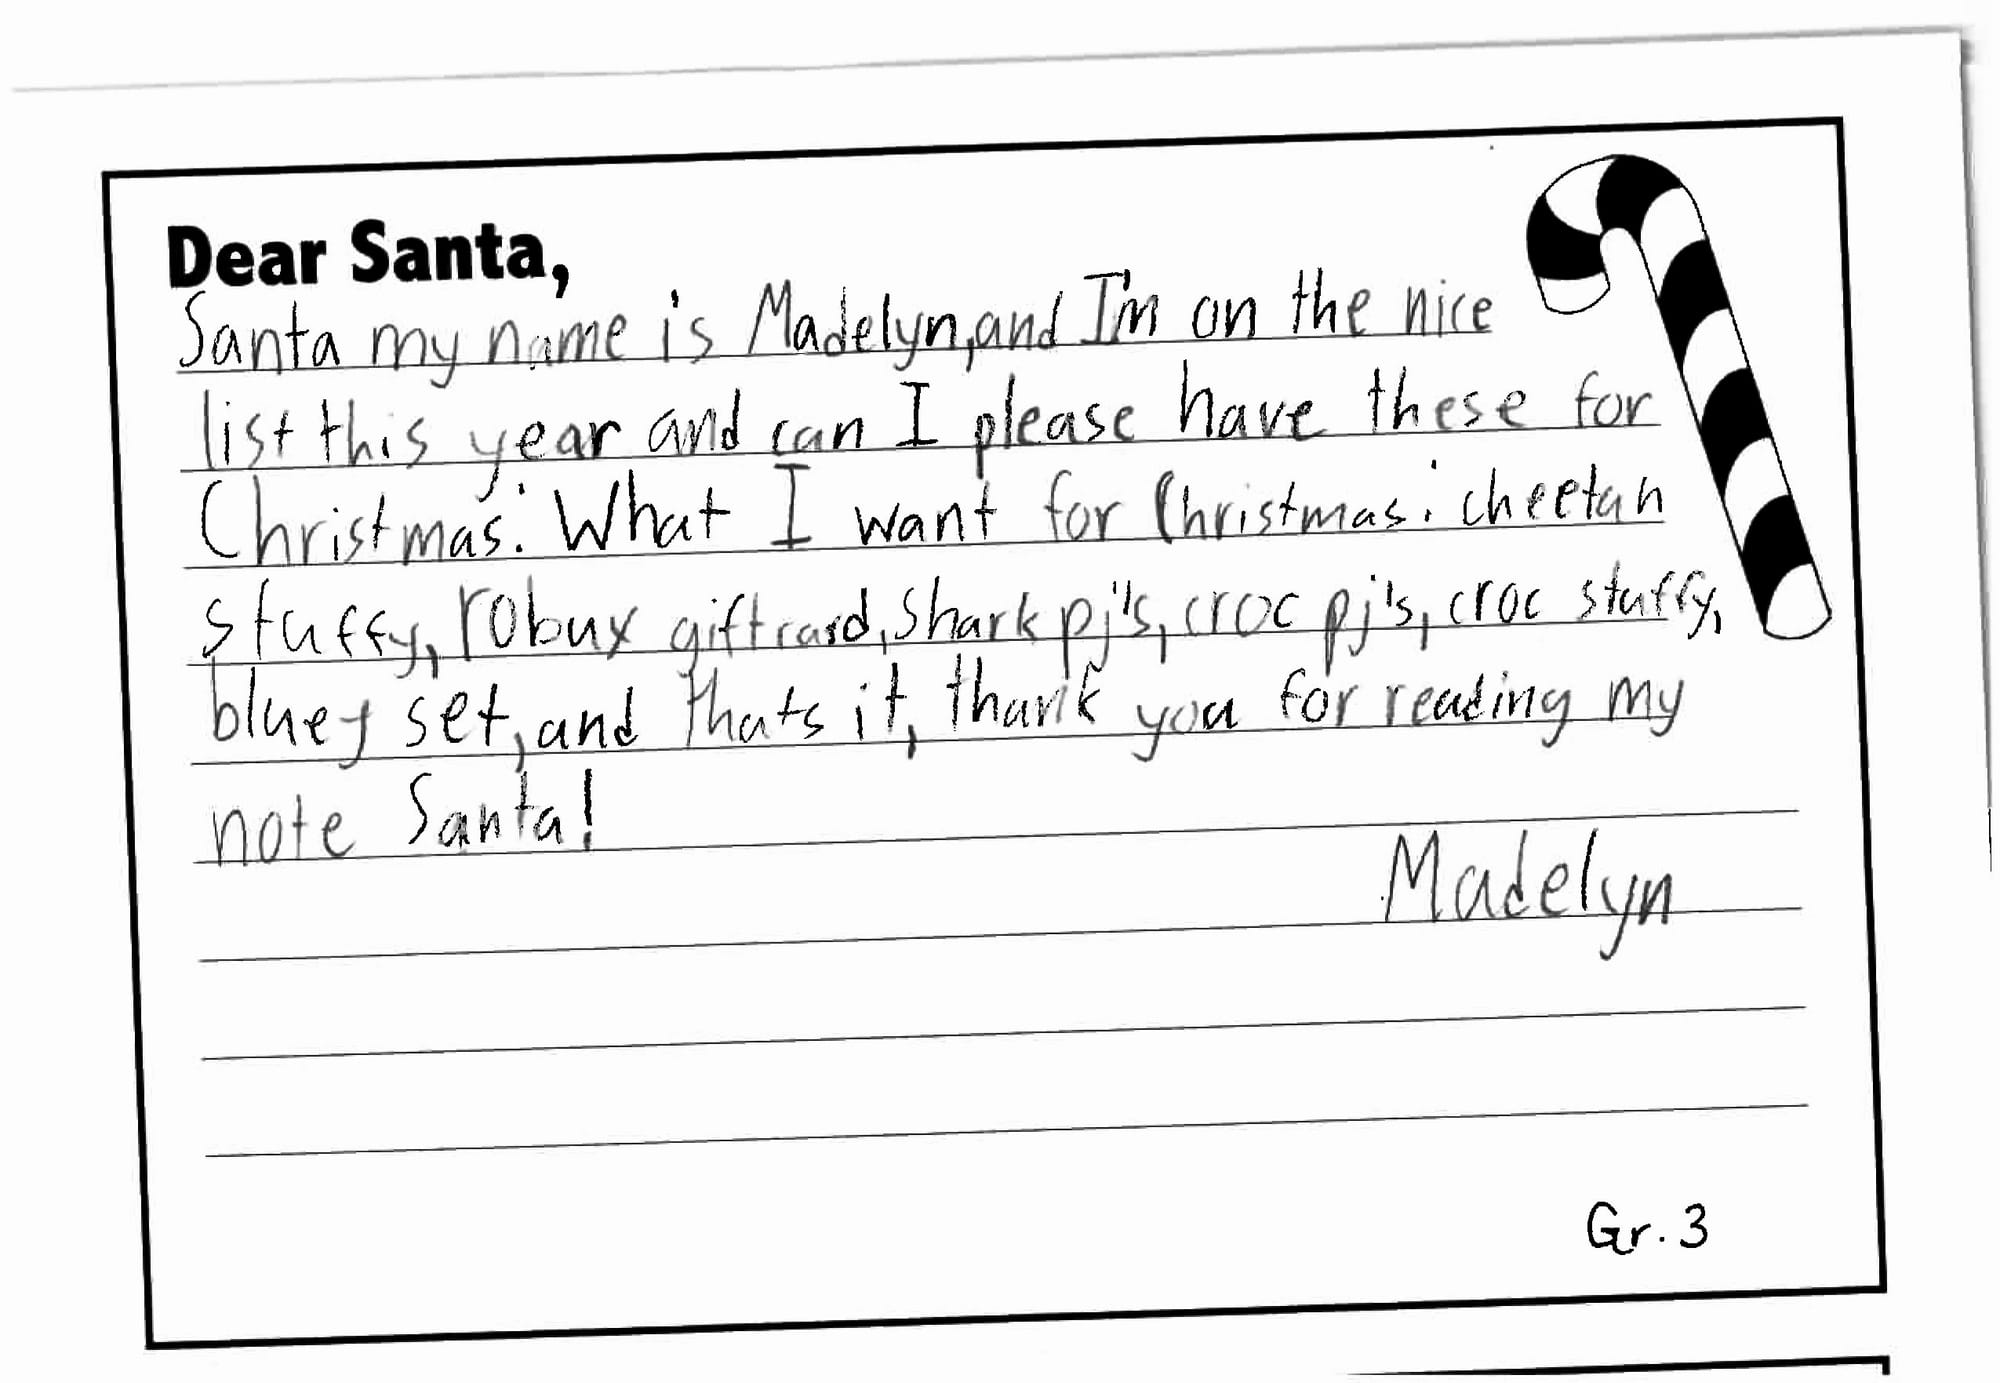 Dear Santa,
Santa my name is Madelyn, and I'm on the nice
list this year and can I please have these for
Christmas: What I want for Christmas: cheetah
stuffy, robux giftcard, shark pj's, croc pj's, croc stuffy,
bluey set, and thats it, thank you for reading my
note Santa!
Madelyn
Gr. 3